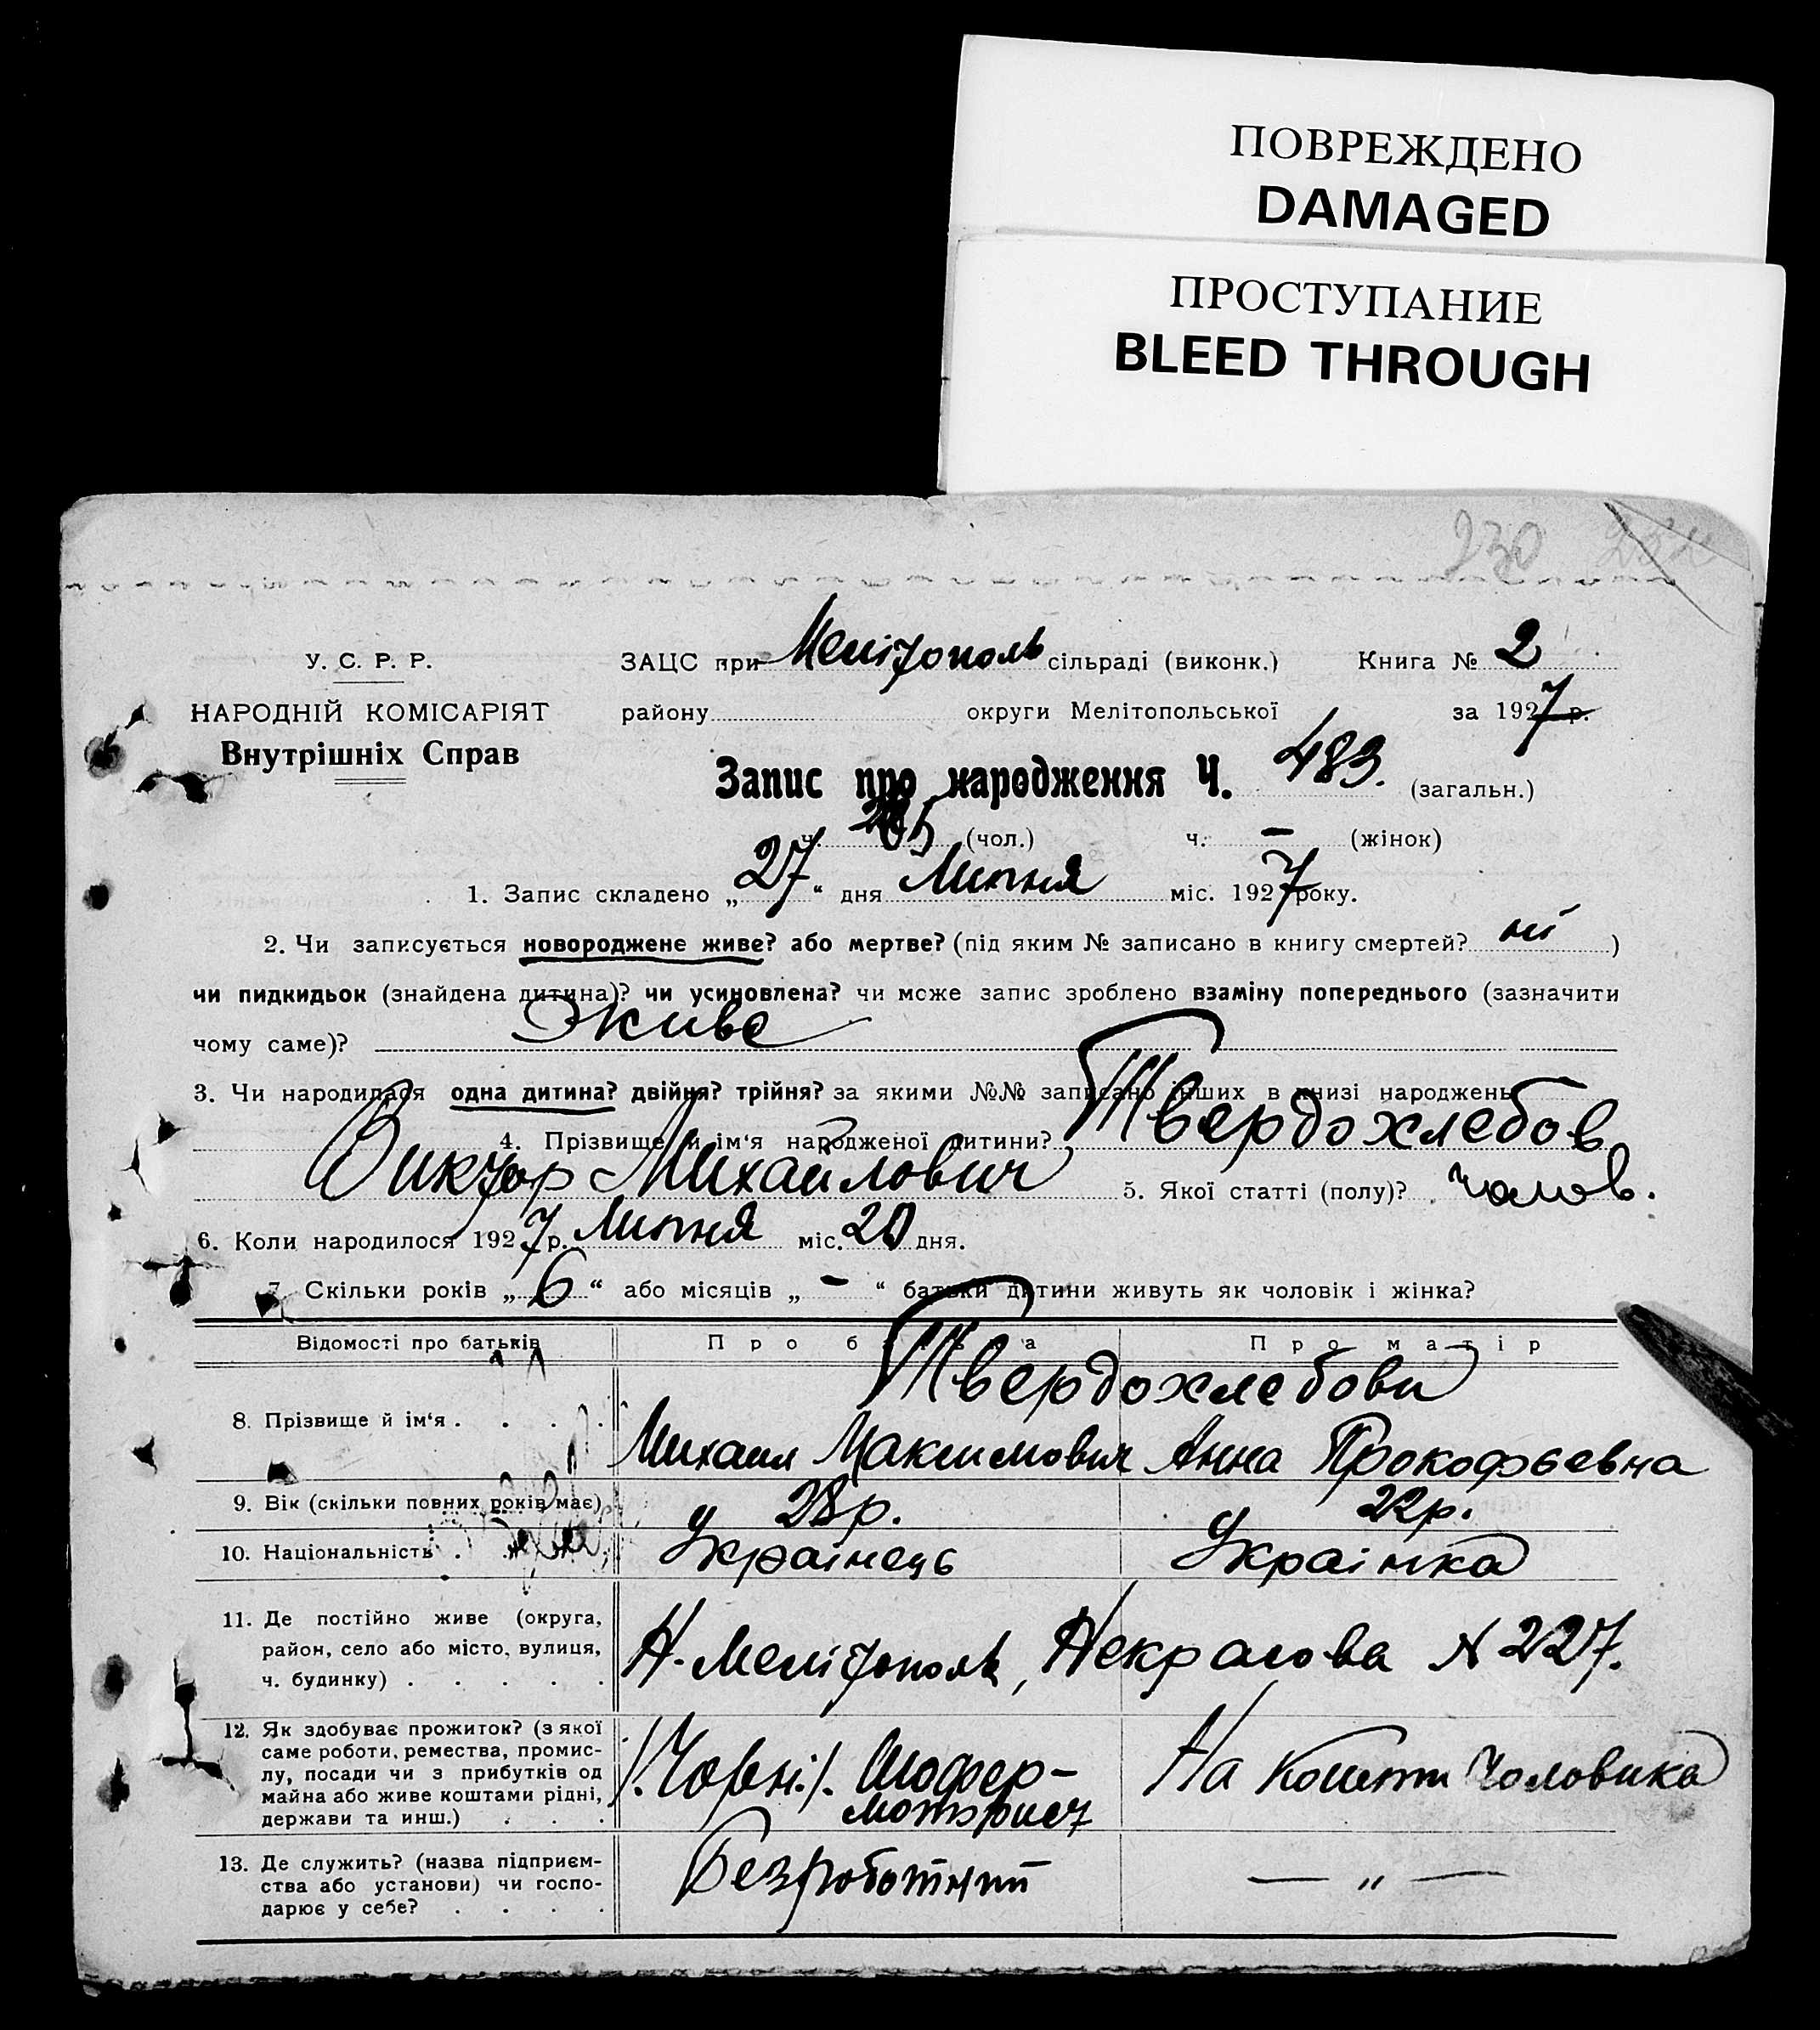 ПОВРЕЖДЕНО
DAMAGED
ПРОСТУПАНИЕ
BLEED THROUGH
230
У. С. Р. Р.
ЗАЦС при Мелітополь сільраді (виконк.) Книга № 2
НАРОДНІЙ КОМІСАРІЯТ
району округи Мелітопольської за 1927 р.
Внутрішніх Справ
Запис про народження Ч. 483. (загальн.)
ч. (чол.) ч. — (жінок)
1. Запис складено „27“ дня Липня міс. 1927 року.
2. Чи записується новороджене живе? або мертве? (під яким № записано в книгу смертей? ні )
чи пидкидьок (знайдена дитина)? чи усиновлена? чи може запис зроблено взаміну попереднього (зазначити
чому саме)? Живе
3. Чи народилася одна дитина? двійня? трійня? за якими №№ записано інших в книзі народжень
4. Прізвище й ім‘я народженої дитини? Твердохлебов
Виктор Михайлович 5. Якої статті (полу)? чолов.
6. Коли народилося 1927 р. Липня міс. 20 дня.
7. Скільки років „6“ або місяців „—“ батьки дитини живуть як чоловік і жінка?
Відомості про батьків Про батька Про матір
Твердохлебови
8. Прізвище й ім‘я . . . .
Михаил Максимович Анна Прокофьевна
9. Вік (скільки повних років має) 28 р. 22 р.
10. Національність . . . . Українець Українка
11. Де постійно живе (округа,
район, село або місто, вулиця,
ч. будинку) . . . . .
Н-Мелітополь, Некрасова N 227.
12. Як здобуває прожиток? (з якої
саме роботи, ремества, промис-
лу, посади чи з прибутків од
майна або живе коштами рідні,
держави та инш.) . . .
Шофер- На кошти чоловика
13. Де служить? (назва підприєм-
ства або установи) чи госпо-
дарює у себе? . . . .
Безработний — „ —